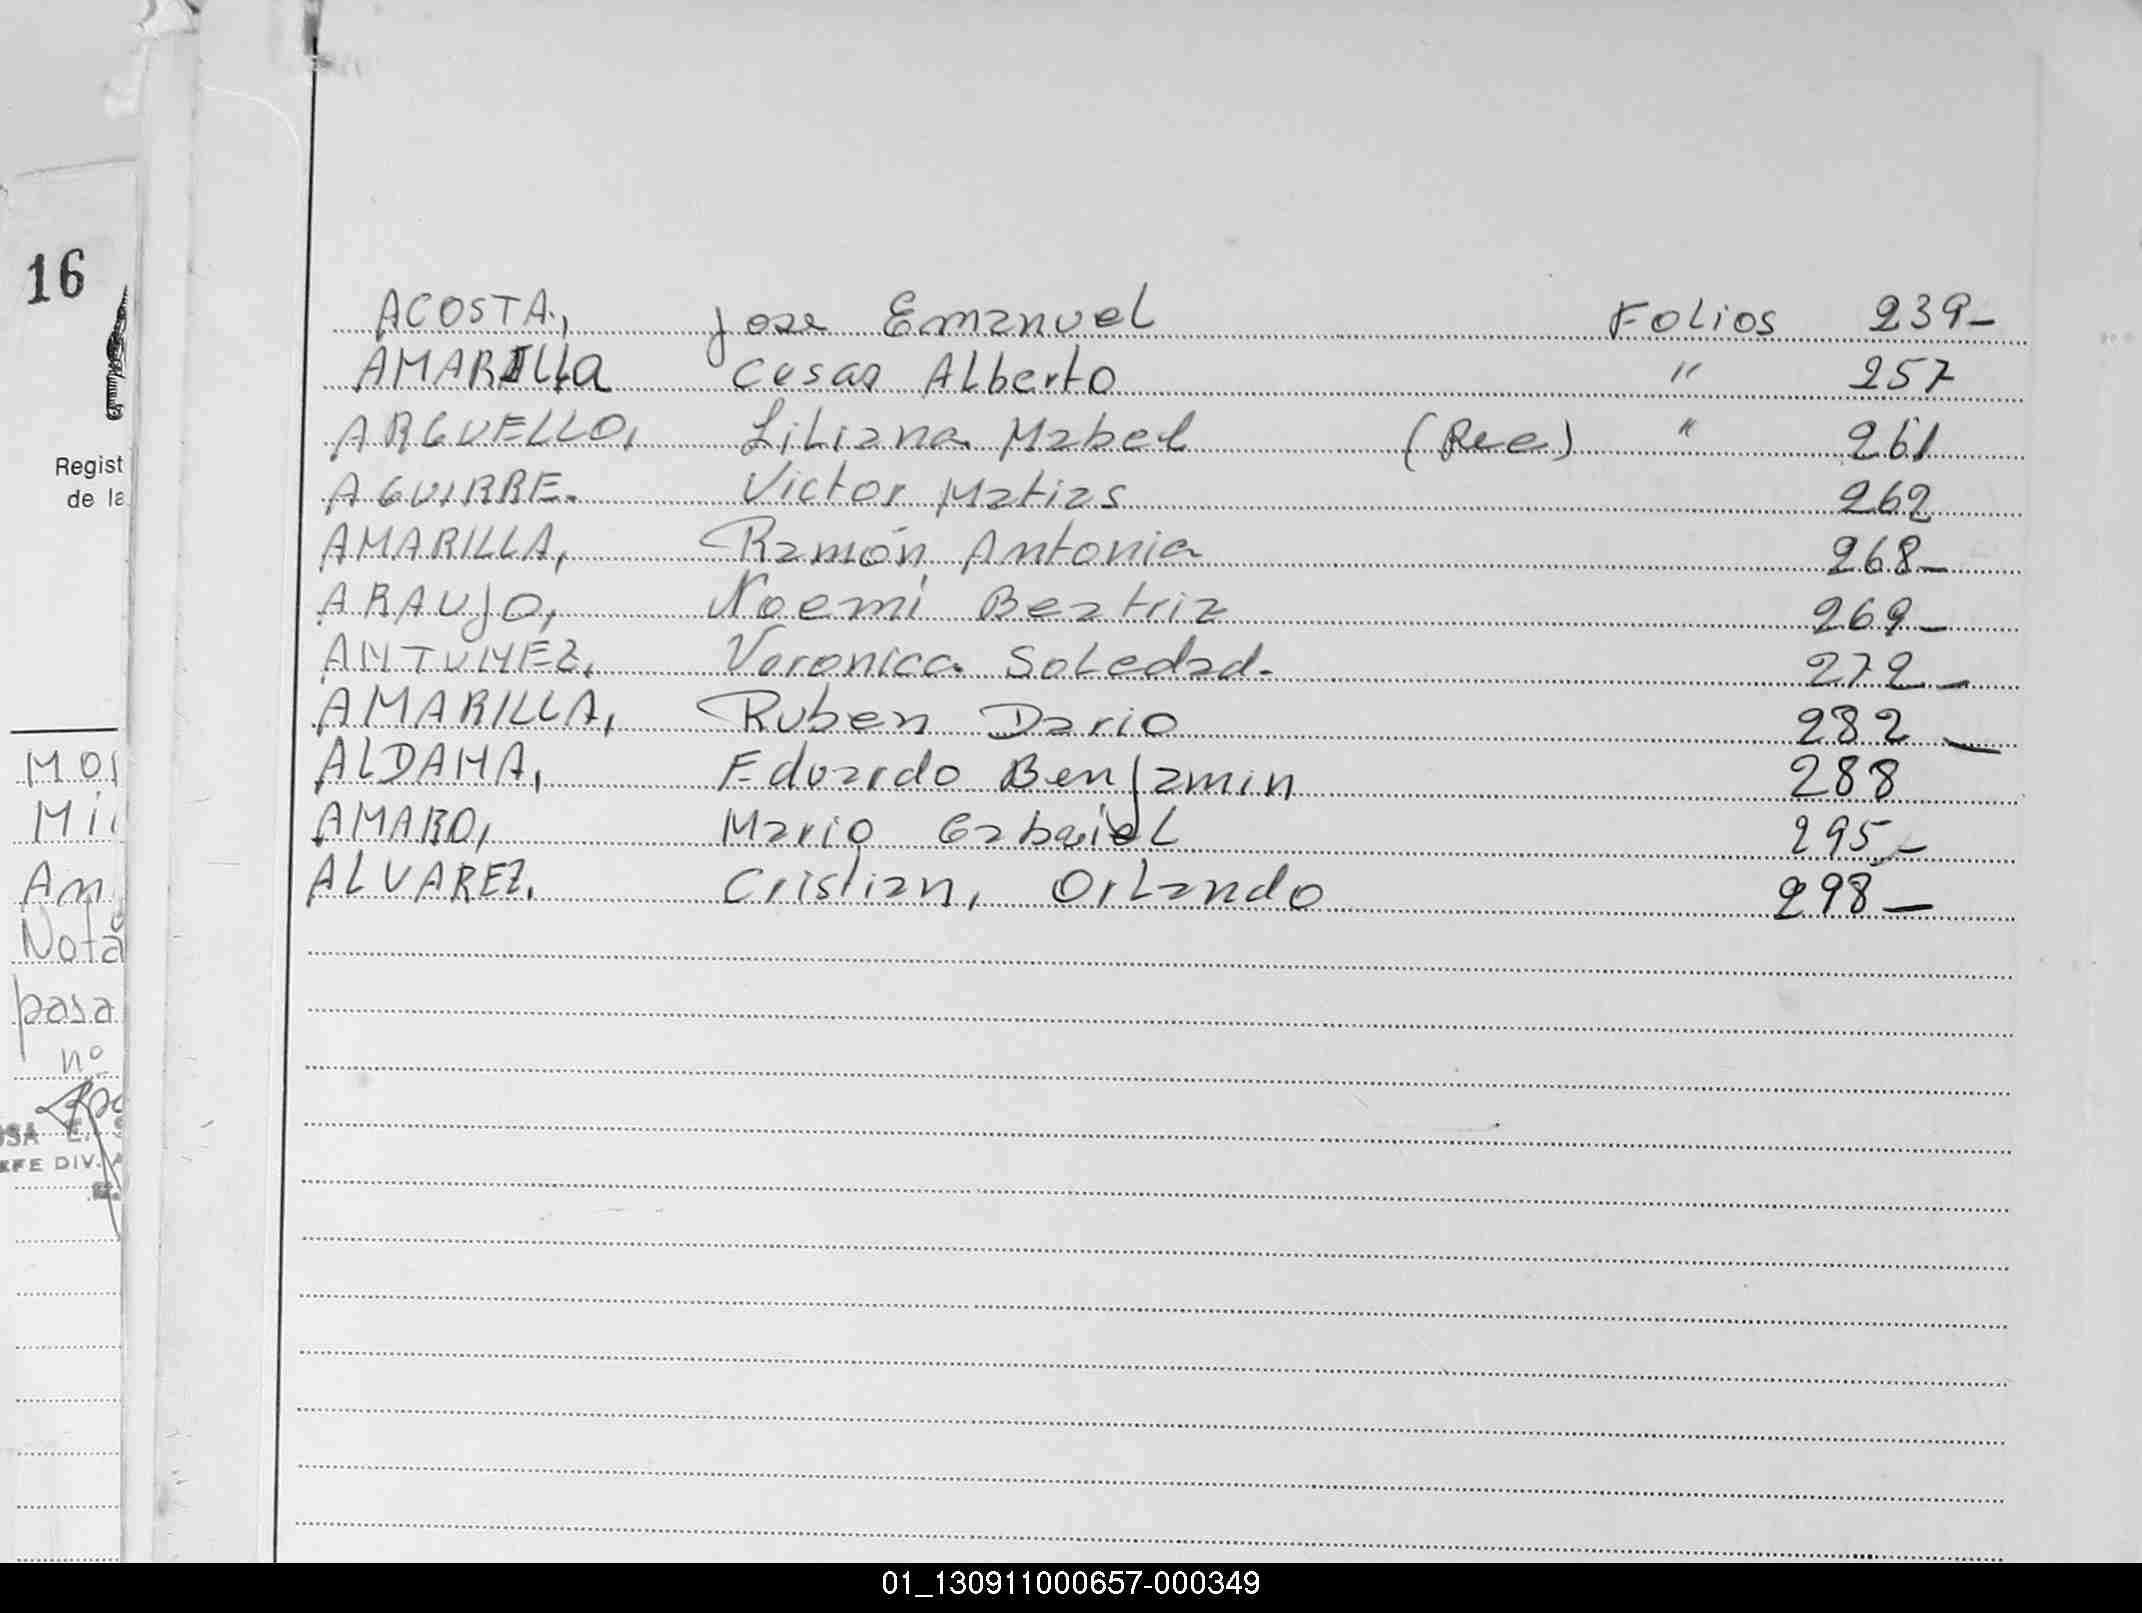 16
Regist
de la
ACOSTA, Jose Emanuel Folios 239-
AMARILLA Cesar Alberto " 257
ARGUELLO, Liliana Mabel (Rec) " 261
AGUIRRE. Victor Matias 262
AMARILLA, Ramón, Antonia 268-
ARAUJO, Noemi Beatriz 269-
ANTUNEZ, Veronica Soledad- 272-
AMARILLA, Ruben Dario 282-
ALDAMA, Eduardo Benjamin 288
AMARO, Mario Gabriel 295-
ALVAREZ, Cristian, Orlando 298-
Nota
pasa
nº
EFE DIV.
01_130911000657-000349